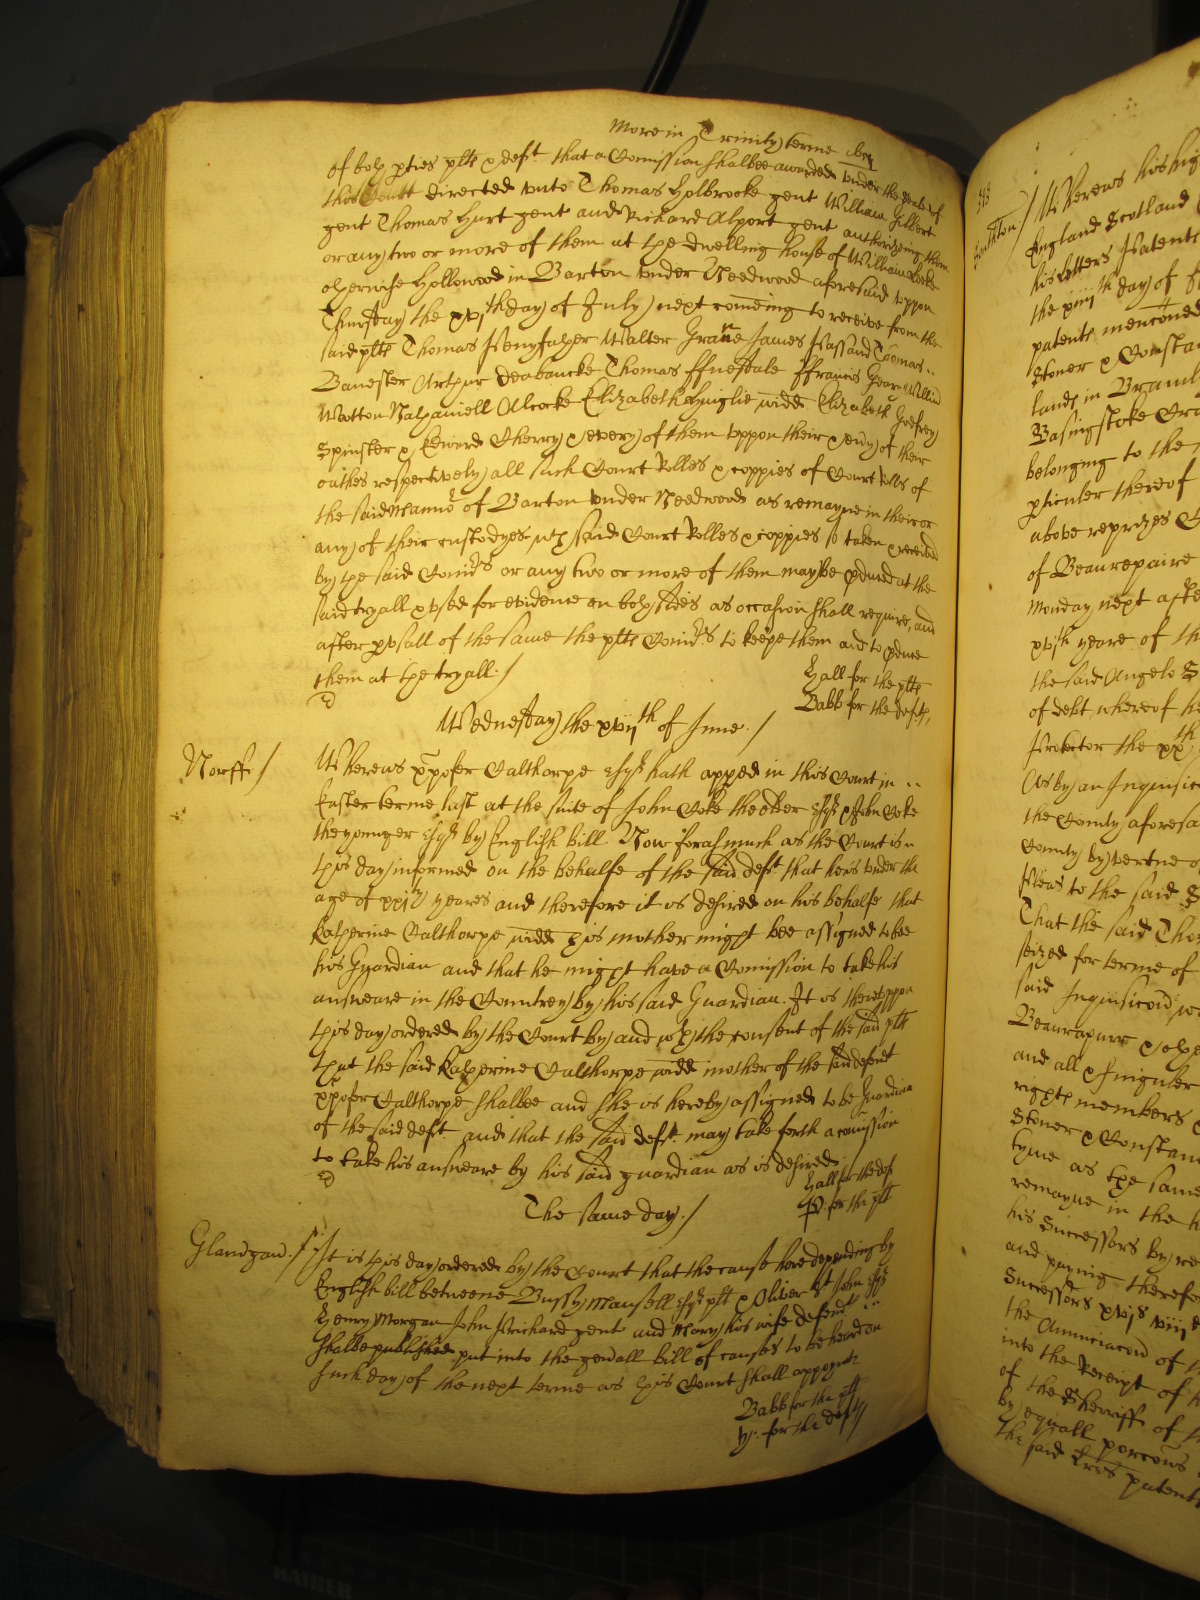 More in Trinity terme
of both pties plts & deft that a Comission shalbee awarded under the seale of
this Court directed unto Thomas Holbrooke gent William Gilbert
gent Thomas Hurt gent and Richard Alport gent authorizeing them
or any two or more of them at the dwelling house of William Locke
otherwise Hollowood in Barton under Needwood aforesaid uppon
Thursday the xvjth day of July next comeing to receive from the
said plts Thomas Walter James Thomas ..
Banester Arthur Thomas ffrancis Willm
Wotton Nathaniell Alcocke Elizabeth widd Elizabeth Godfrey
Spinster & Edward Cherry & every of them uppon their & every of their
oathes respectively all such Court Rolles & coppies of Court Rolls of
the said Mannor of Barton under Needwood as remayne in their or
any of their custodyes, wch said Court Rolles & coppies so taken & received
by the said Comrs or any two or more of them maybe pduced at the
said tryall & used for evidence on both sides as occasion shall require, and
after pusall of the same the plts Comrs to keepe them and to pduce
them at the tryall. /
Hall for the plts
Babb for the defts,
Wednesday the xvijth of June. /
Norff. /
Whereas xpofer Calthorpe Esqr hath apped in this Court in ..
Easter terme last at the suite of John Coke the elder Esqr & John Coke
the younger Esqr by English bill Now forasmuch as the Court is
this day informed on the behalfe of the said deft that hee is under the
age of xxjty yeares and therefore it is desired on his behalfe that
Katherine Calthorpe widd his mother might bee assigned to bee
his Guardian and that he might have a Comission to take his
answeare in the Countrey by his said Guardian. It is thereuppon
this day ordered by the Court by and wth the consent of the said plts
that the said Katherine Calthorpe widd mother of the said defendt
xpofer Calthorpe shalbee and she is hereby assigned to be Guardian
of the said deft and that the said deft may take forth a comission
to take his answeare by his said guardian as is desired
Hall for the deft
for the plt
The same day. /
Glamrgan. /
It is this day ordered by the Court that the cause here depending by
English bill betweene Bussy Mansell Esqr plt & Oliver St John Esqr
Henry Morgan John Prichard gent and Mary his wife defendts ..
shalbe published put into the genall bill of causes to be heard on
such day of the next terme as this Court shall appoynte
Babb for the plt
for the defts
Whereas his hig
England Scotland
his Letters Patent
the xiiijth day of
patents menconed
Stoner & Constan
lands in Braml
Basingstoke
belonging to the
pticuler thereof
above reprizes
of Beaurepaire
Monday next afte
xvjth yeare of th
the said Angelo S
of debt whereof he
Protector the xxth
As by an Inquisic
the County aforesa
County by vertue o
Pleas to the said S
That the said Tho
seized for terme of
said Inquisicon
Beaurapaire & othe
and all & singuler
rights members
Stoner & Constan
tyme as the same
remayne in the h
his Successors by
and paying therefo
Successors xvjs viijd
the Annunciacon of
into the Receipt of
of the Sherriffe of
by equall porcons
the said Lres patents